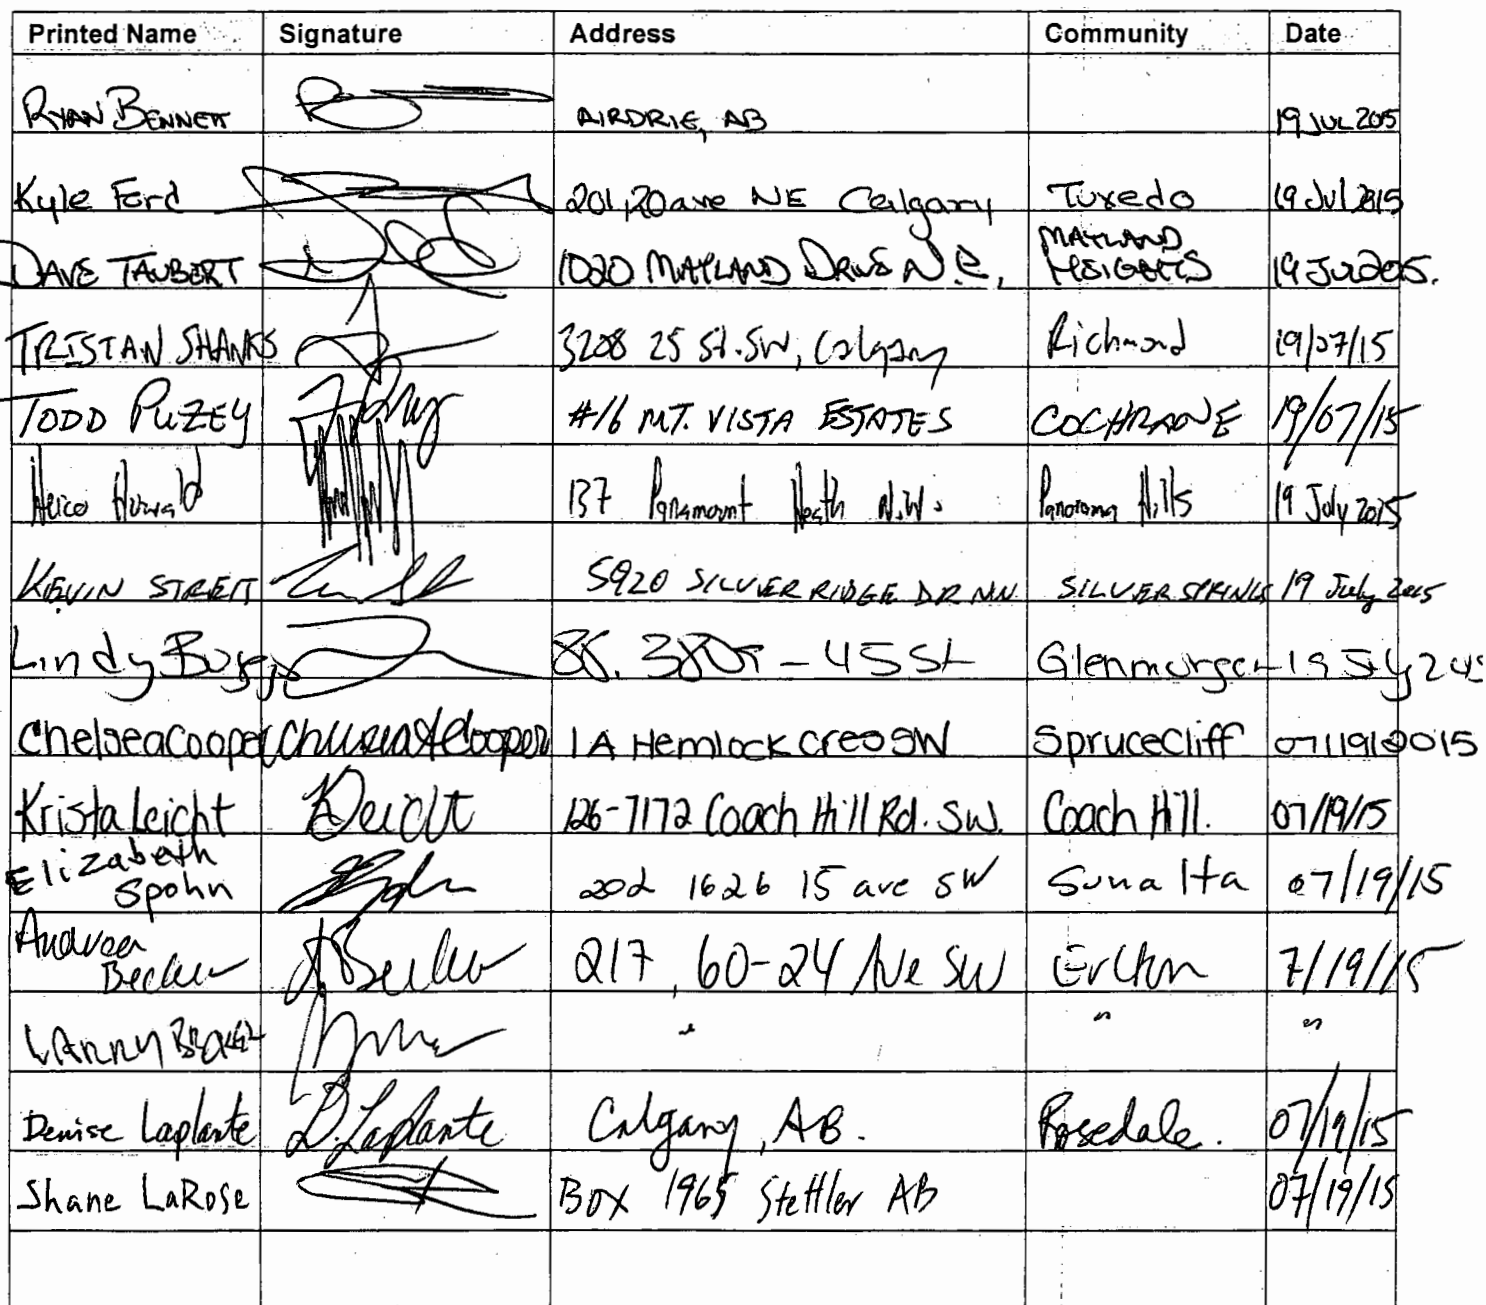 Printed Name Signature Address Community Date
RYAN BENNETT AIRDRIE, AB 19 JUL 2015
Kyle Ford 201, 20 ave NE Calgary Tuxedo 19 Jul 2015
DAVE TAUBERT 1020 MAYLAND DRIVE N.E. MAYLAND HEIGHTS 19 JUL 2015.
TRISTAN SHANKS 3208 25 St. SW, Calgary Richmond 19/07/15
TODD PUZEY #16 MT. VISTA ESTATES COCHRANE 19/07/15
137 Panamount Heath N.W. Panorama Hills 19 July 2015
KEVIN STREIT 5920 SILVER RIDGE DR NW. SILVER SPRINGS 19 July 2015
Lindy - 45 St 19
Chelsea Cooper Chelsea Cooper 1A Hemlock Cres SW Spruce Cliff 07/19/2015
Krista Leicht KLeicht 126-7172 Coach Hill Rd. SW. Coach Hill. 07/19/15
Elizabeth Spohn 202 1626 15 ave SW Sunalta 07/19/15
Andrea Becker ABecker 217, 60-24 Ave SW Erlton 7/19/15
" " "
Denise Laplante D. Laplante Calgary, AB. Rosedale. 07/19/15
Shane LaRose Box 1965 Stettler AB 07/19/15